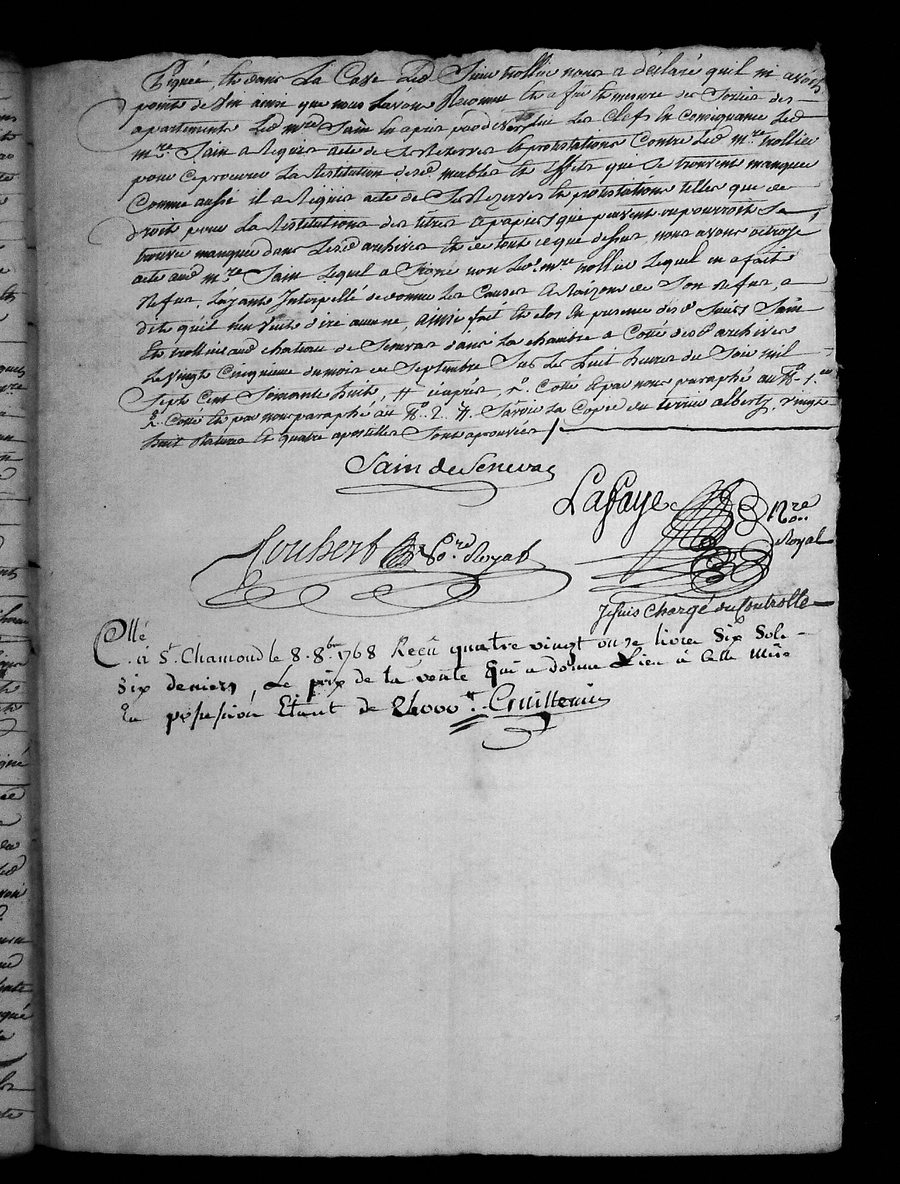 piquée, et dans La Cave Led. Sieur trollier nous a déclaré quil ni avoit
point de vin ainsi que nous Lavons Reconnu et a fur et mesure de Sorties des
apartements Led. mre. Sain la après pardevers lui Les Clefs En Consequance Led.
mre. Sain a Requis acte de Ses Reserves & protestations Contre Led. mre. trollier
pour Ce procurer La Restitution desd. meubles et Effets qui Se trouvent manquer
Comme aussi il a Requis acte de Ses Reserves et protestations telles que de
droit pour La Restitutions des titres & papiers que peuvent ou pourroit Se
trouver manquer dans Lesd. archives Et de tout ce que dessus nous avons octroyé
acte aud. mre. Sain Lequel a Signé non Led. mre. trollier Lequel en a fait
Refus, Layants Interpellé de donner Les Causes & Raizons de Son Refus, a
dit quil n'en veut dire aucune, ainsi fait et clos en presence desd. Sieurs Sain
Et trollier aud. chateau de Senevas dans la chambre a Cotté desd. archives
Le vingt Cinquieme du mois de Septembre Sur Les huit heures du Soir mil
Sept Cent Soixante huit, # ci après, r. Cotté & par nous paraphé au No. 1. er
2. Cotté et par nous paraphé au No. 2. #. Savoir La Copie du terrier albertz, vingt
huit Ratures et quatre apostilles Sont aprouvées /
Sain de Senevas
Lafaye Nre. Royal
Joubert No.re Royal
Je suis Chargé du Controlle
Ctllé
à St. Chamond le 8. 8bre 1768 Reçu quatre vingt onze livres Six Sols
Six deniers, Le prix de la vente qui a donné Lieu à Celle mise
En possession Etant de 24000 tt